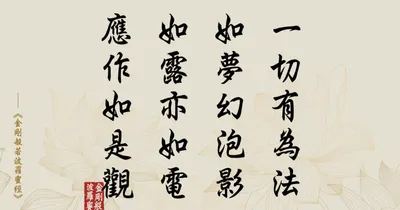 一切有為法
如夢幻泡影
如露亦如電
應作如是觀
——《金剛般若波羅蜜經》
金剛般
波羅蜜